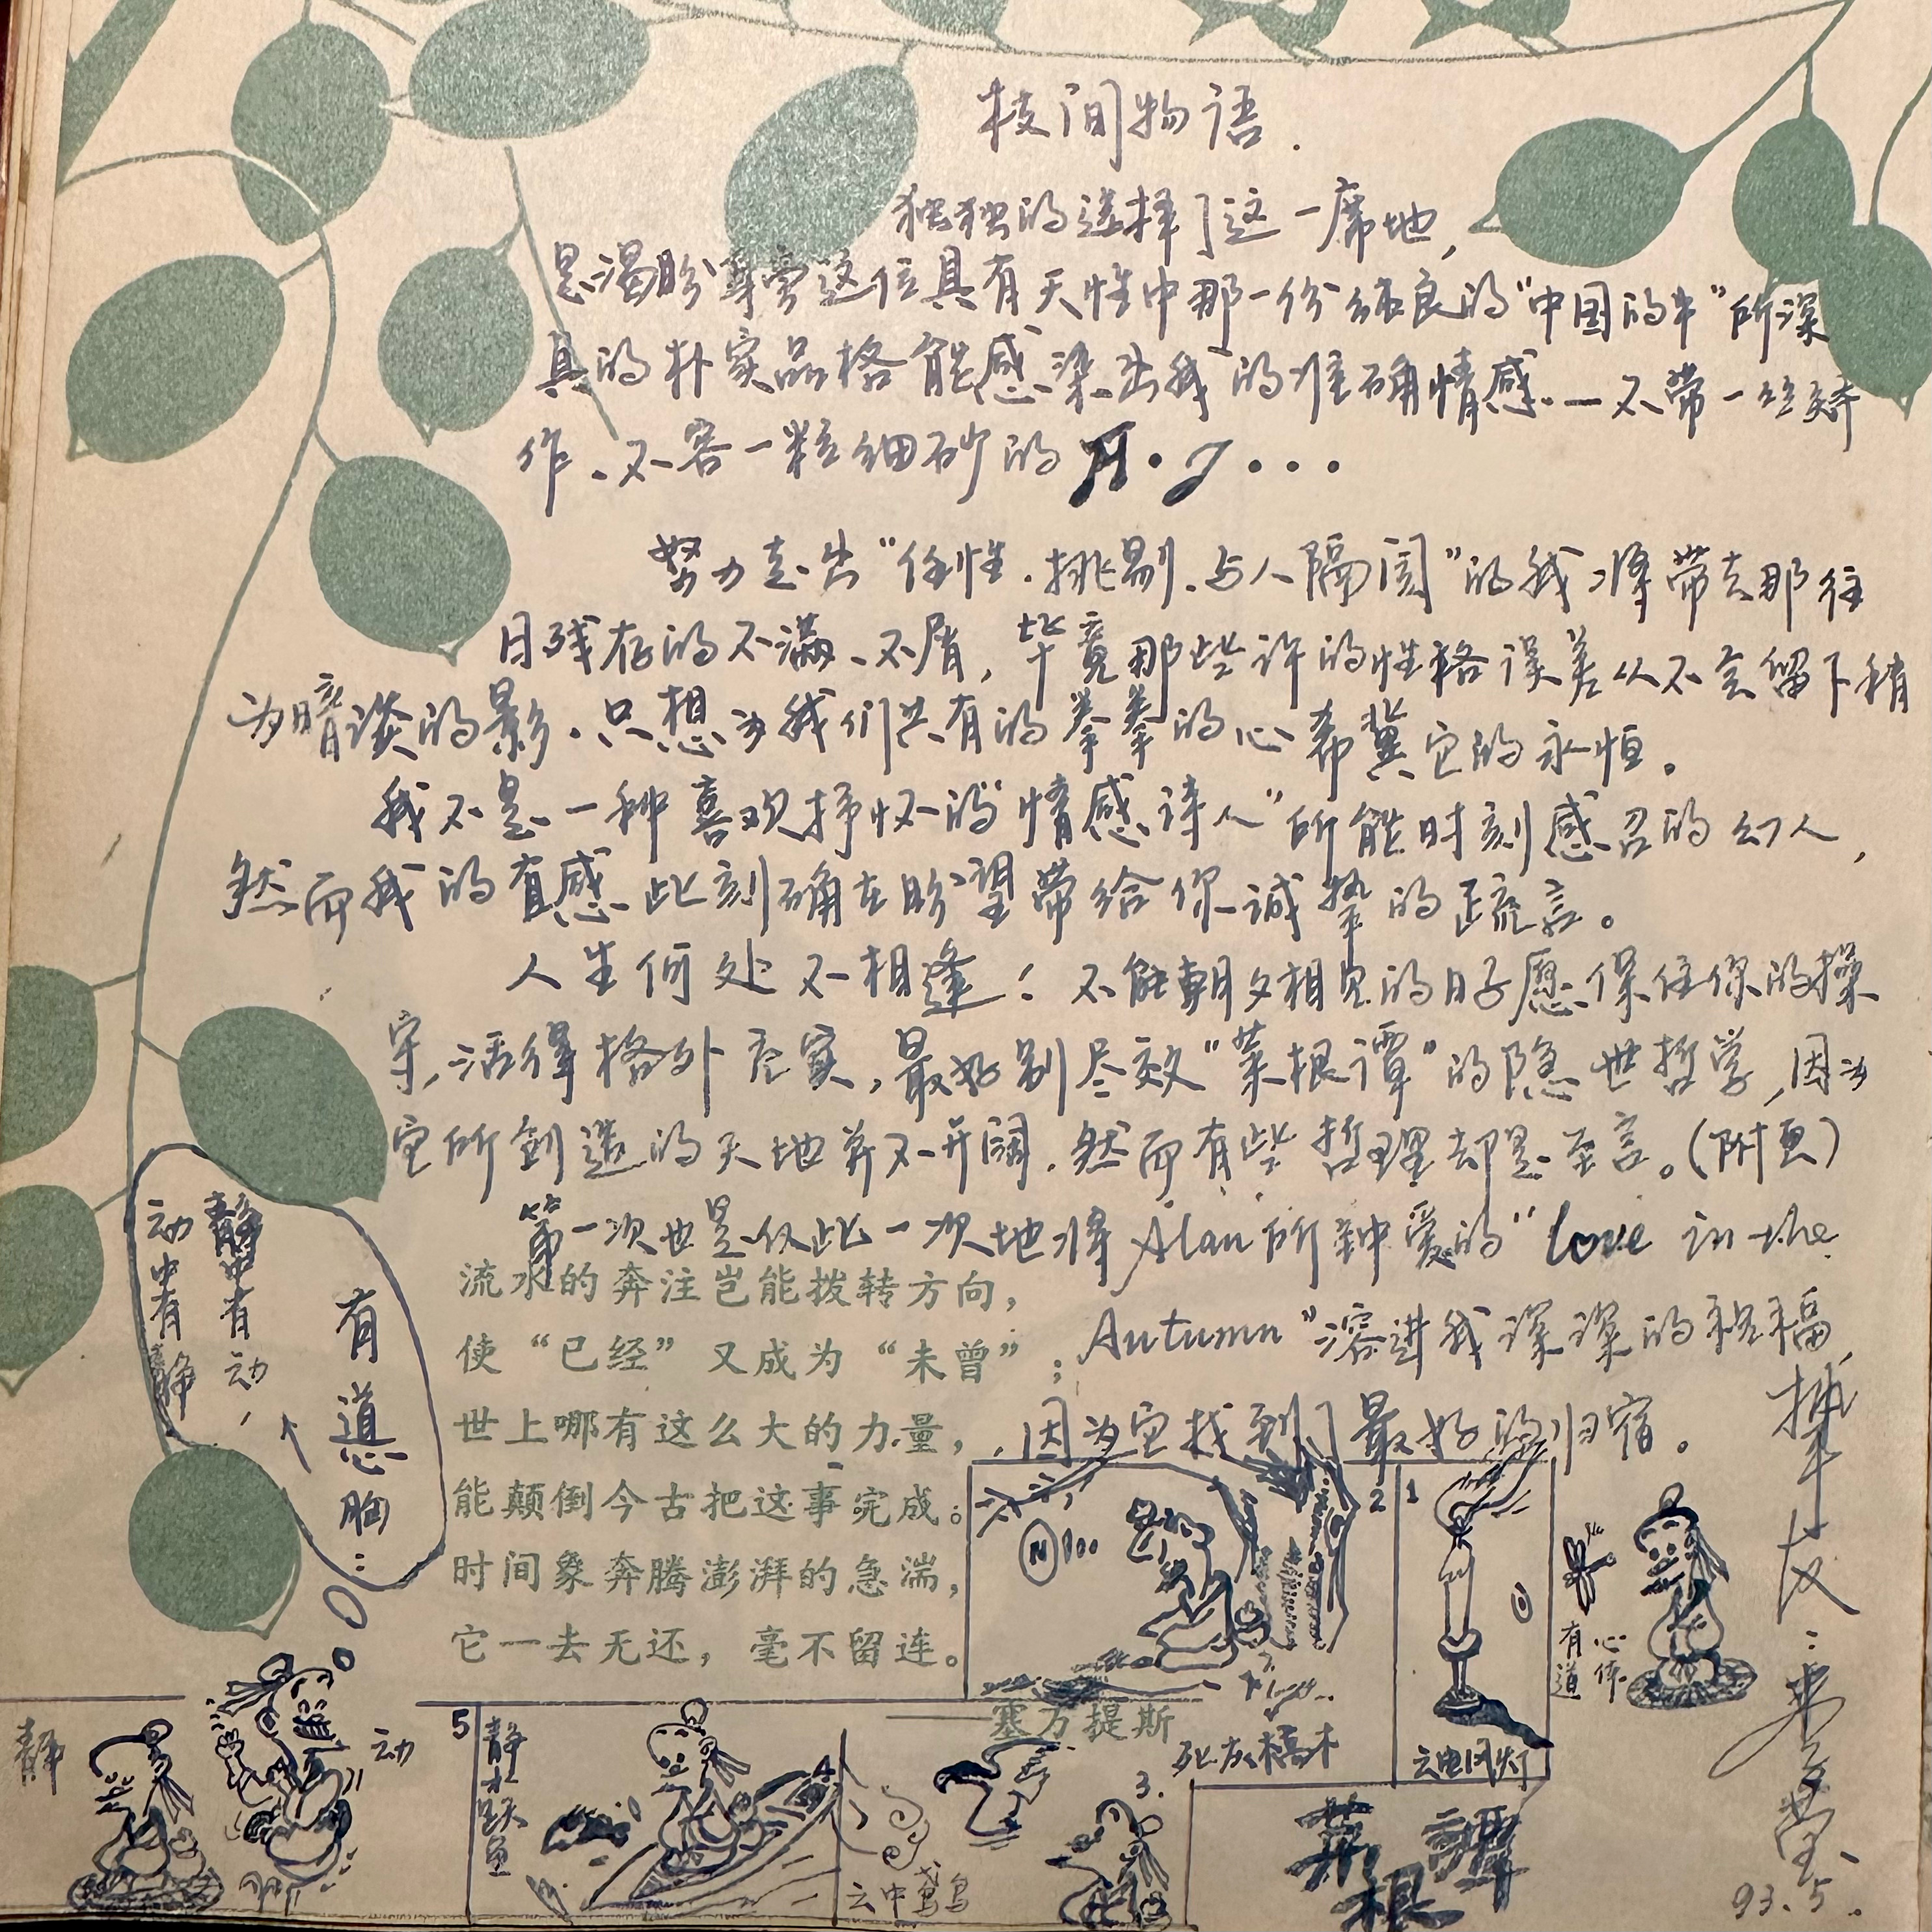 枝间物语.
独独的选择了这一席地,
是渴盼尊雪这位具有天性中那一份纯良的“中国的牛”所深
具的朴实品格能感染出我的准确情感——不带一丝矫
作、不容一粒细砂的
努力走出“任性.挑剔.与人隔阂”的我将带去那往
日残存的不满、不屑,毕竟那些许的性格误差从不会留下稍
为暗淡的影.只想为我们共有的拳拳的心希冀它的永恒。
我不是一种喜欢抒怀的“情感诗人”所能时刻感召的幻人,
然而我的直感此刻确在盼望带给你诚挚的疏言。
人生何处不相逢!不能朝夕相见的日子愿保住你的操
守,活得格外充实,最好别尽效“菜根谭”的隐世哲学,因为
它所创造的天地并不开阔.然而有些哲理却是至言。(附画)
第一次也是仅此一次地将Alan所钟爱的“love in the
Autumn”溶进我深深的祝福,
因为它找到了最好的归宿。
挚友:
93.5.
流水的奔注岂能拨转方向,
使“已经”又成为“未曾”;
世上哪有这么大的力量,
能颠倒今古把这事完成。
时间象奔腾澎湃的急湍,
它一去无还,毫不留连。
——塞万提斯
静中有动,
动中有静
有道心胸:
静
动
5
静水跃鱼
4
云中鸢鸟
3.
2
死灰槁木
1
云电风灯
有道心体
菜根譚